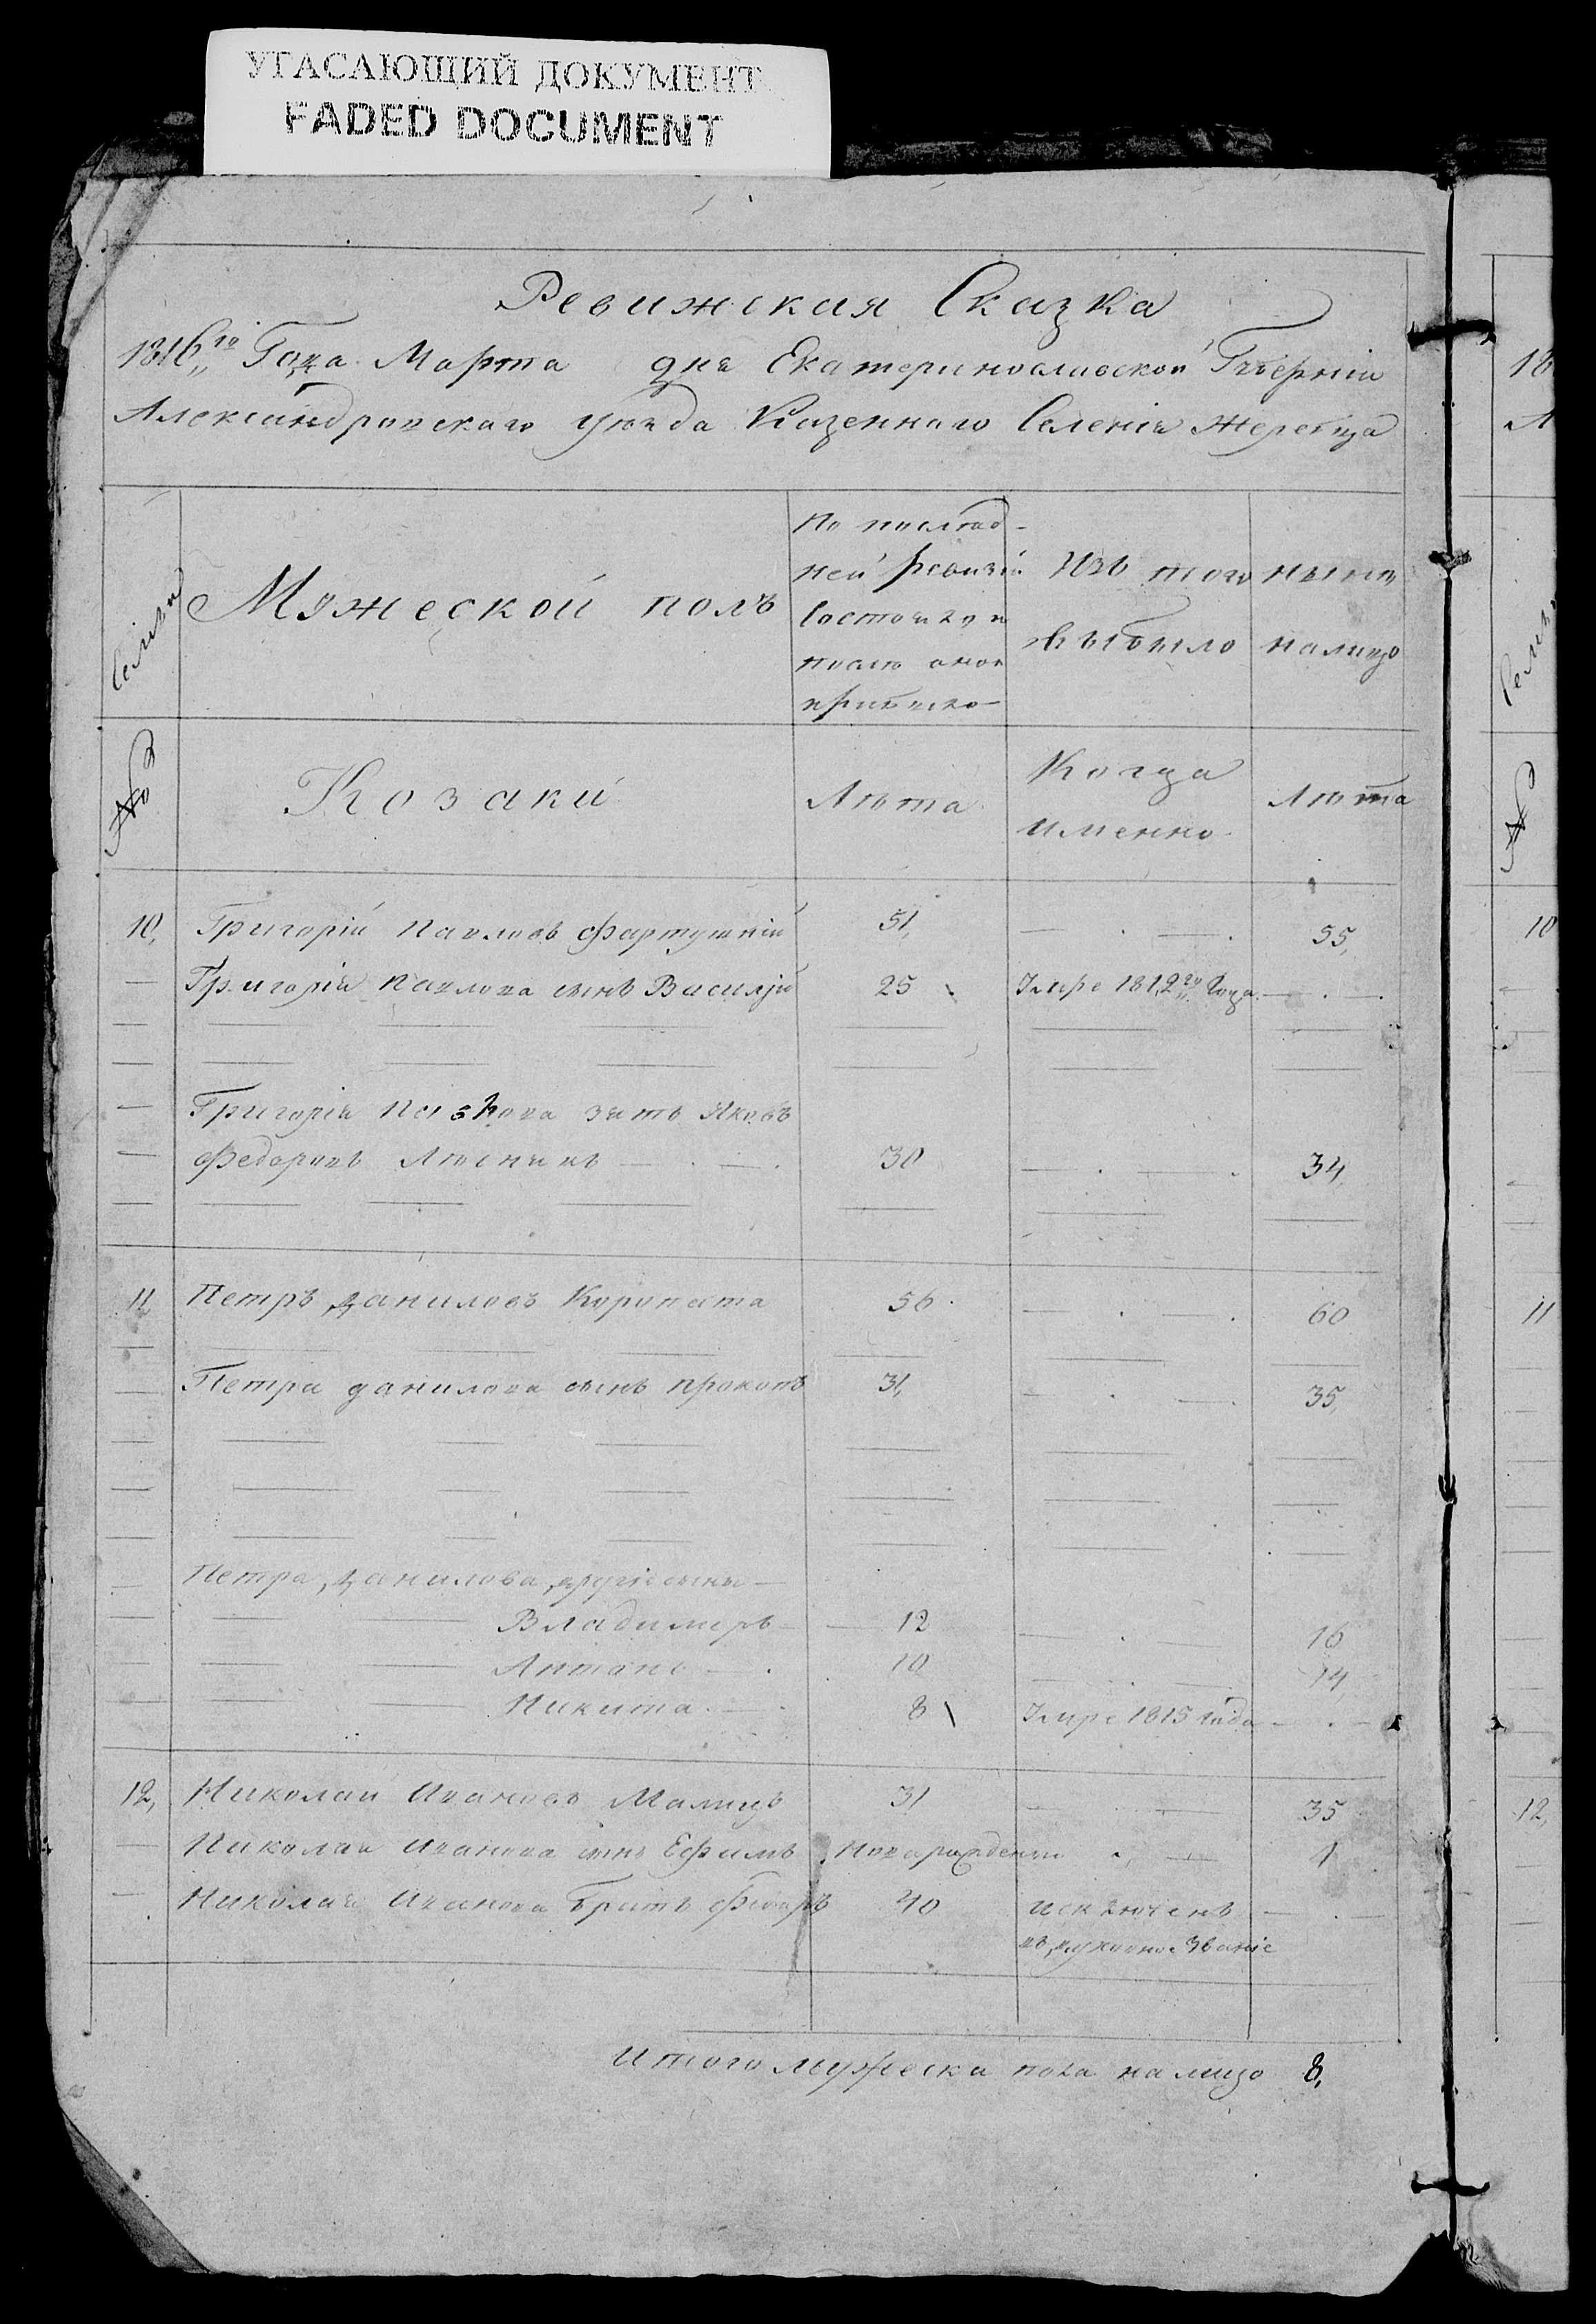 УГАСАЮЩИЙ ДОКУМЕНТ
FADED DOCUMENT
Ревижская Сказка
1816,,го Года Марта дня Екатеринославской Губернiи
Александровского уѣзда Казенного Селенiя Жеребца
Семьи
Мужеской полъ
По послѣд-
ней ревизiи
состояло и
послѣ оной
прибыло
Изъ того
выбыло
нынѣ
налицо
№
Козаки
Лѣта
Когда
именно
Лѣта
10, Григорiй Павловъ 51, — . — . 55,
— Григорiя Павлова сынъ Василiй 25 Умре 1812,,го Года — . — .
— Григорiя Павлова зять Яковъ
— Федоровъ — . — . 30 — . — . 34,
11 Петръ Даниловъ Коропата 56 . — . — . 60
— Петра данилова сынъ прокопъ 31, — . — . 35,
— Петра Данилова другiе сыны —
— Владимеръ — 12 — . — 16
— Антонъ — . 10 — . — 14,
— Никита . — . 8 Умре 1815 Года — . —
12, Николай Ивановъ 31 — — 35
— Николая Иванова сынъ Ефимъ новорожденъ . — 1
— Николая Иванова братъ Федоръ 40 исключенъ — . —
въ духовное званiе
Итого мужеска пола налицо 8,
18
А
Семьи
№
10
11
12,